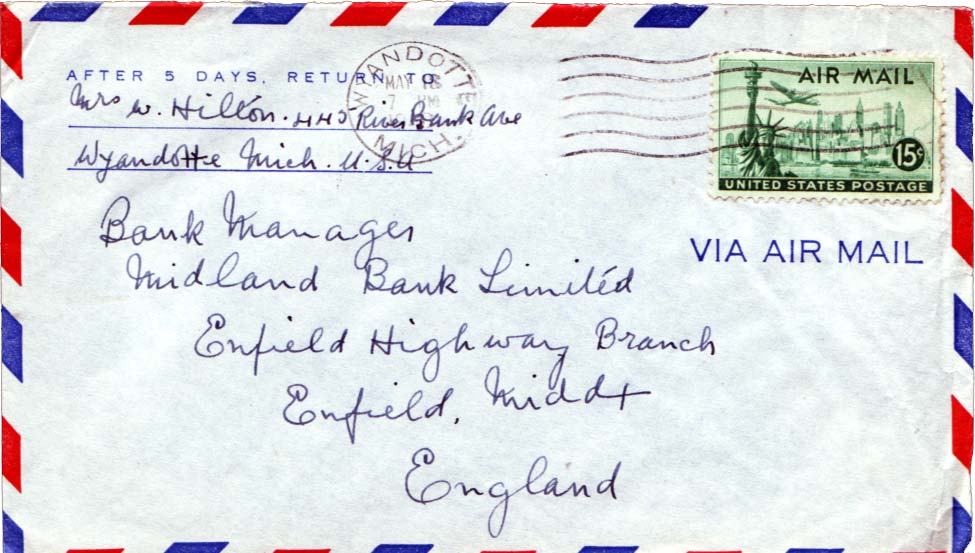 AFTER 5 DAYS, RETURN TO
Mrs W. Hilton. 445 River Bank Ave
Wyandotte Mich. U.S.A
WYANDOTTE
MAY 18
7 PM
MICH.
AIR MAIL
15¢
UNITED STATES POSTAGE
VIA AIR MAIL
Bank Manager
Midland Bank Limited
Enfield Highway Branch
Enfield, Middx
England